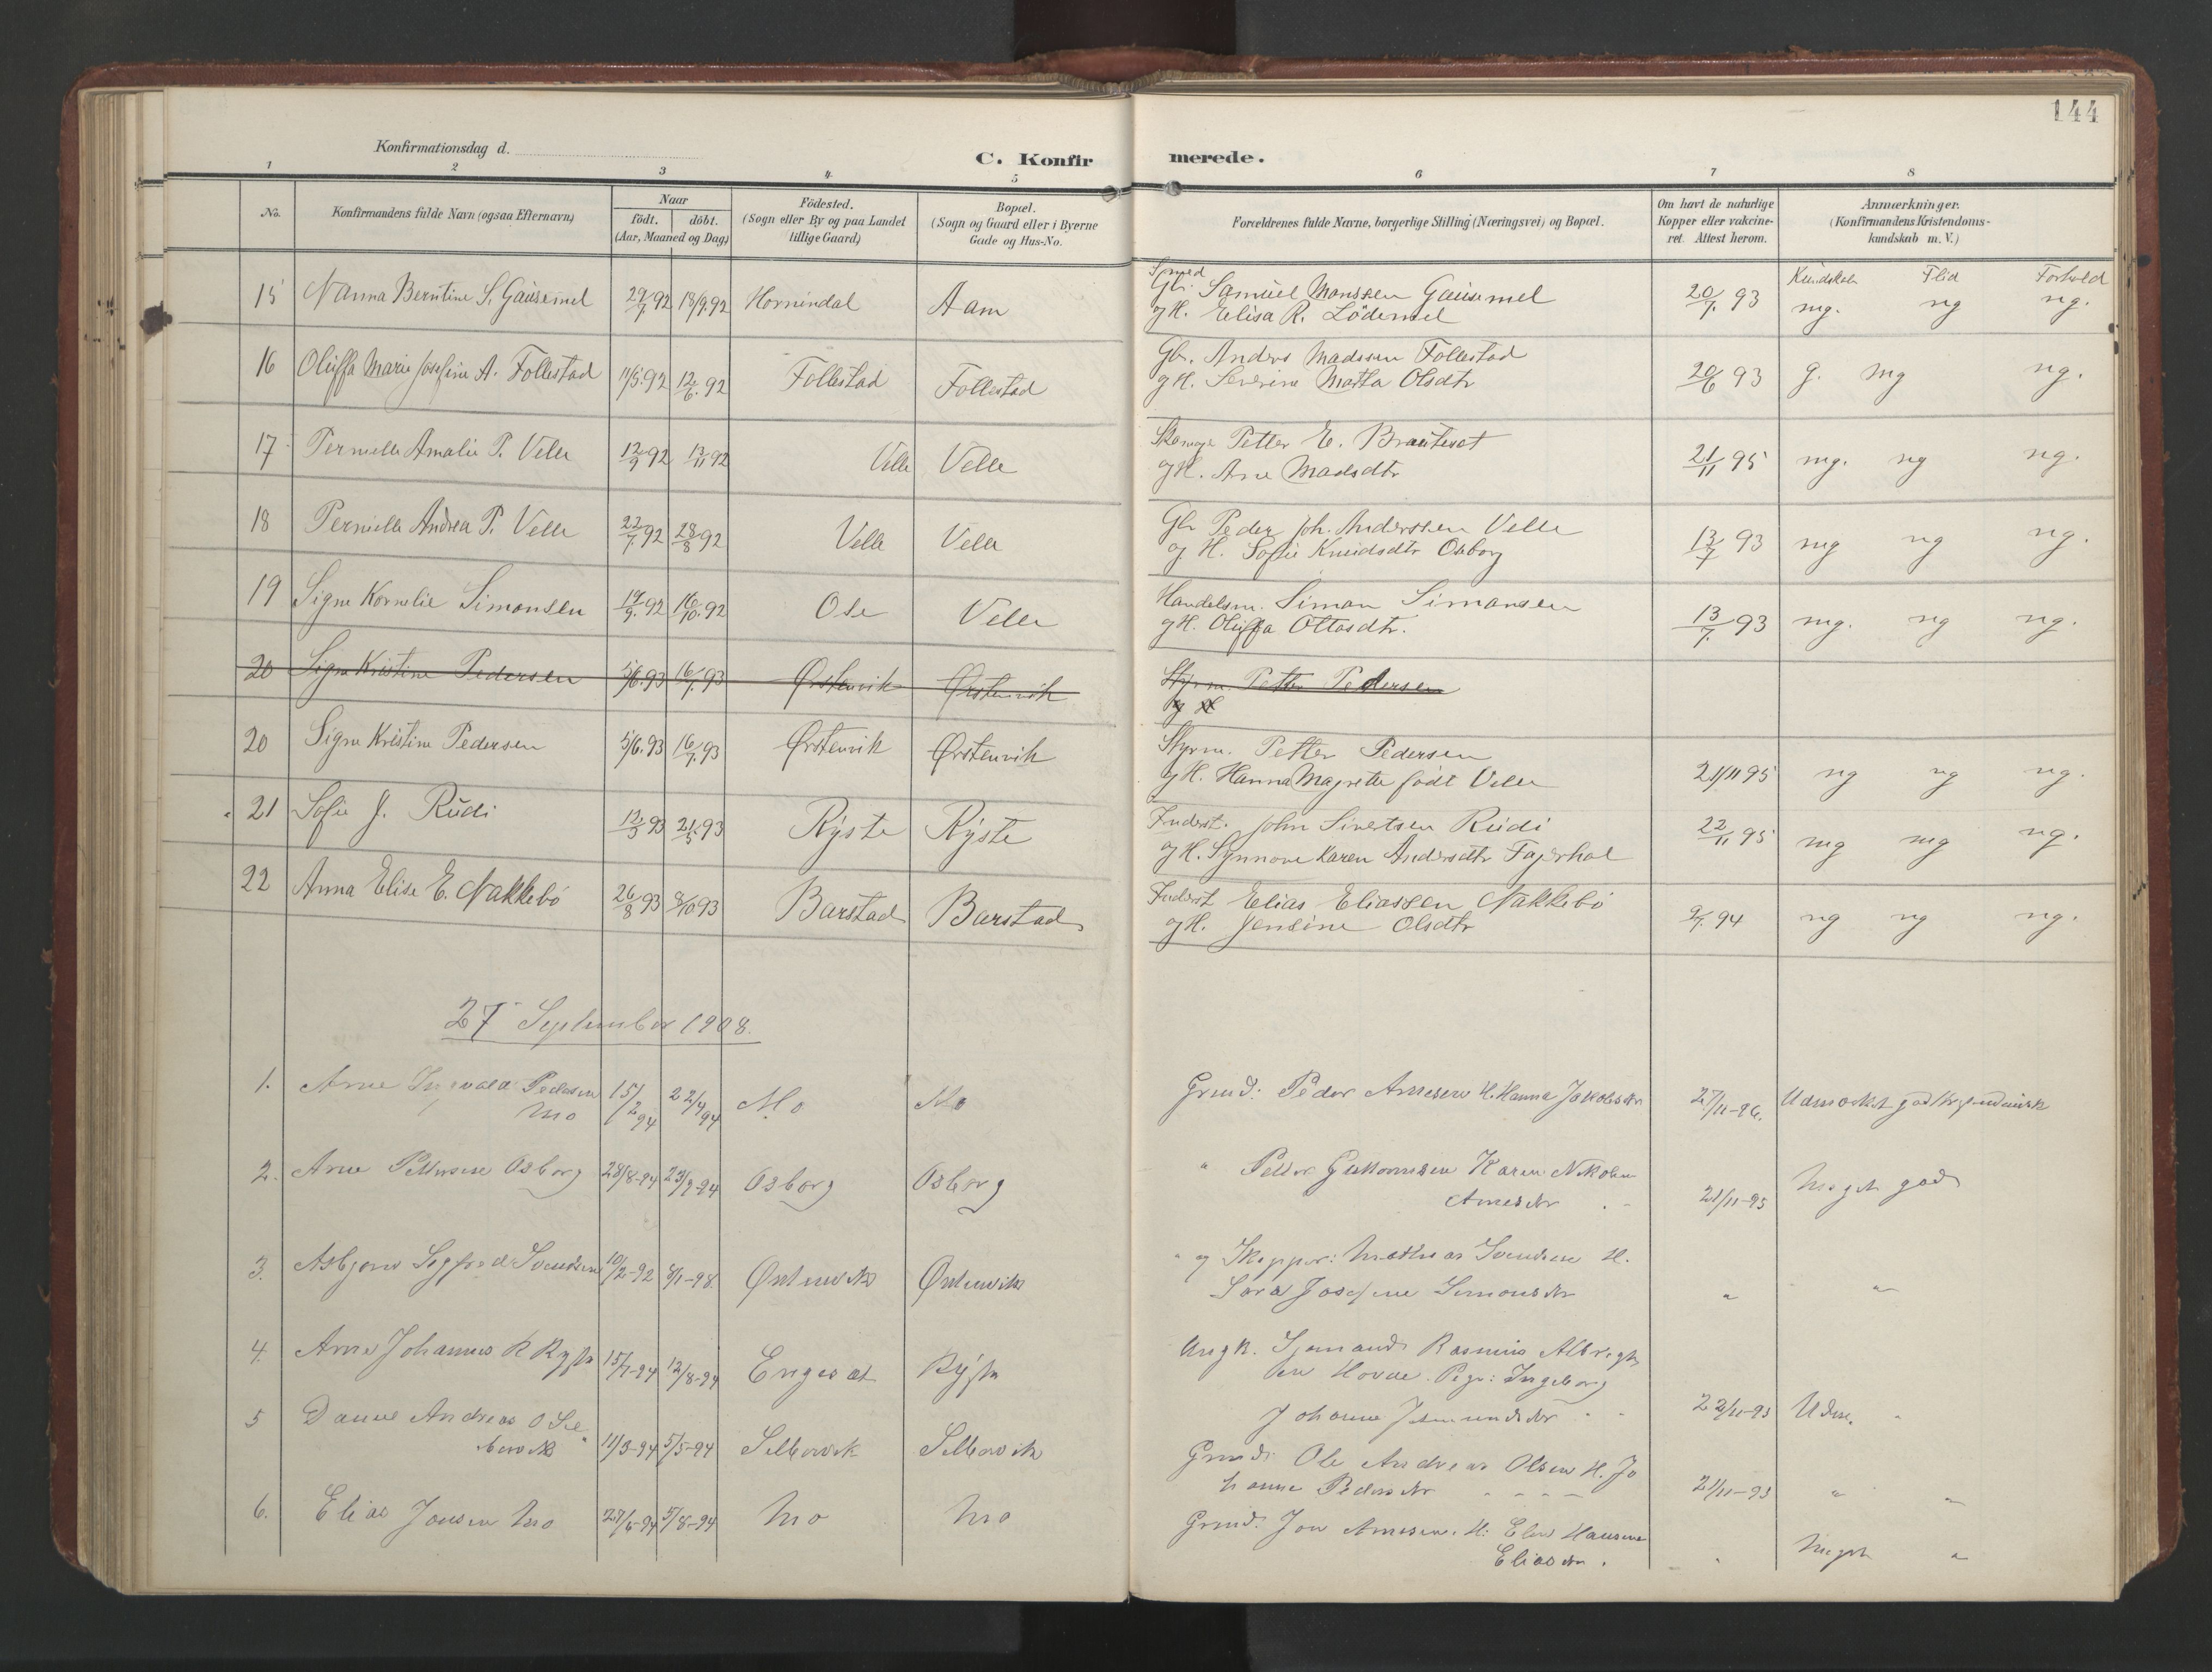 144
Konfirmationsdag d.
C. Konfirmerede.
1 2 3 4 5 6 7 8
No. Konfirmandens fulde Navn (ogsaa Efternavn) Naar født. døbt. (Aar, Maaned og Dag) Födested. (Sogn eller By og paa Landet tillige Gaard) Bopæl. (Sogn og Gaard eller i Byerne Gade og Hus-No. Forældrenes fulde Navne, borgerlige Stilling (Næringsvei) og Bopæl. Om havt de naturlige Kopper eller vakcineret. Attest herom. Anmærkninger. (Konfirmandens Kristendomskundskab m. V.)
Kundskab Flid Forhold
15 Nanna Berntine S. Gausemel 29/7 92 18/9 92 Hornindal Aam Smed Gbr. Samuel Monssen Gausemel 20/7 93 mg. ng ng.
og H. Elisa R. Lödemel
16 Oluffa Marie Josefine A. Follestad 11/5 92 12/6 92 Follestad Follestad Gbr. Anders Madssen Follestad 20/6 93 g. mg ng.
og H. Severine Matta Olsdtr
17 Pernille Amalie P. Velle 12/9 92 13/11 92 Velle Velle Skomager Petter E. Brauteset 21/11 95 mg. ng ng.
og H. Ane Madsdtr
18 Pernille Andrea P. Velle 22/7 92 28/8 92 Velle Velle Gbr Peder Joh. Anderssen Velle 13/7 93 mg ng ng.
og H. Sofie Knudsdtr Osborg
19 Signe Kornelie Simonsen 19/9 92 16/10 92 Ose Velle Handelsm. Simon Simonsen 13/7 93 mg. ng ng.
og H. Oluffa Ottosdtr.
20 Signe Kristine Pedersen 5/6.93 16/7 93 Ørstenvik Ørstenvik Styrm. Petter Pedersen
og H
20 Signe Kristine Pedersen 5/6.93 16/7 93 Ørstenvik Ørstenvik Styrm. Petter Pedersen 21/11 95 ng ng ng.
og H. Hanna Magrete født Velle
21 Sofie J. Rudi 12/3 93 21/5 93 Ryste Ryste Inderst. John Sivertsen Rudi 22/11 95 mg mg ng.
og H. Synnove Karen Andersdtr Fagerhol
22 Anna Elise E. Nakkebö 26/8 93 8/10 93 Barstad Barstad Inderst Elias Eliassen Nakkebö 9/7 94 ng ng ng.
og H. Jensine Olsdtr
27 September 1908.
1. Arne Ingvald Pedersen 15/2 94 22/4 94 Mo Mo Grmd: Peder Arnesen H. Hanna Jakobsdtr 27/11-96.
Mo
2. Arne Pettersen Osborg 28/8-94 23/9-94 Osborg Osborg " Petter Guttormsen Karen Nikoline
Arnesdtr 21/11-95 Meget god
3. Asbjørn Sigfred Svendsen 10/2-92 8/1-98. Ørstenvik Ørstenvik " og Skipper: Mathias Svendsen H.
Sara Josefine Simonsdtr " "
4. Arne Johannes R Ryste 15/7-94 12/8-94 Engeset Ryste Ungk. Sjømand Rasmus Albrigt
sen Hovde. Pige: Ingeborg
Johanne 22/11-93 Udm. "
5 Daniel Andreas O Sæ 11/3-94 5/5-94 Sætervik Sætervik Grmd: Ole Andreas Olsen H. Jo
hanne Pedersdtr 21/11-93 " "
6. Elias Jonsen Mo 27/6-94 5/8-94 Mo Mo Grmd: Jon Arnesen. H: Elen Hansine
Eliasdtr. " Meget "